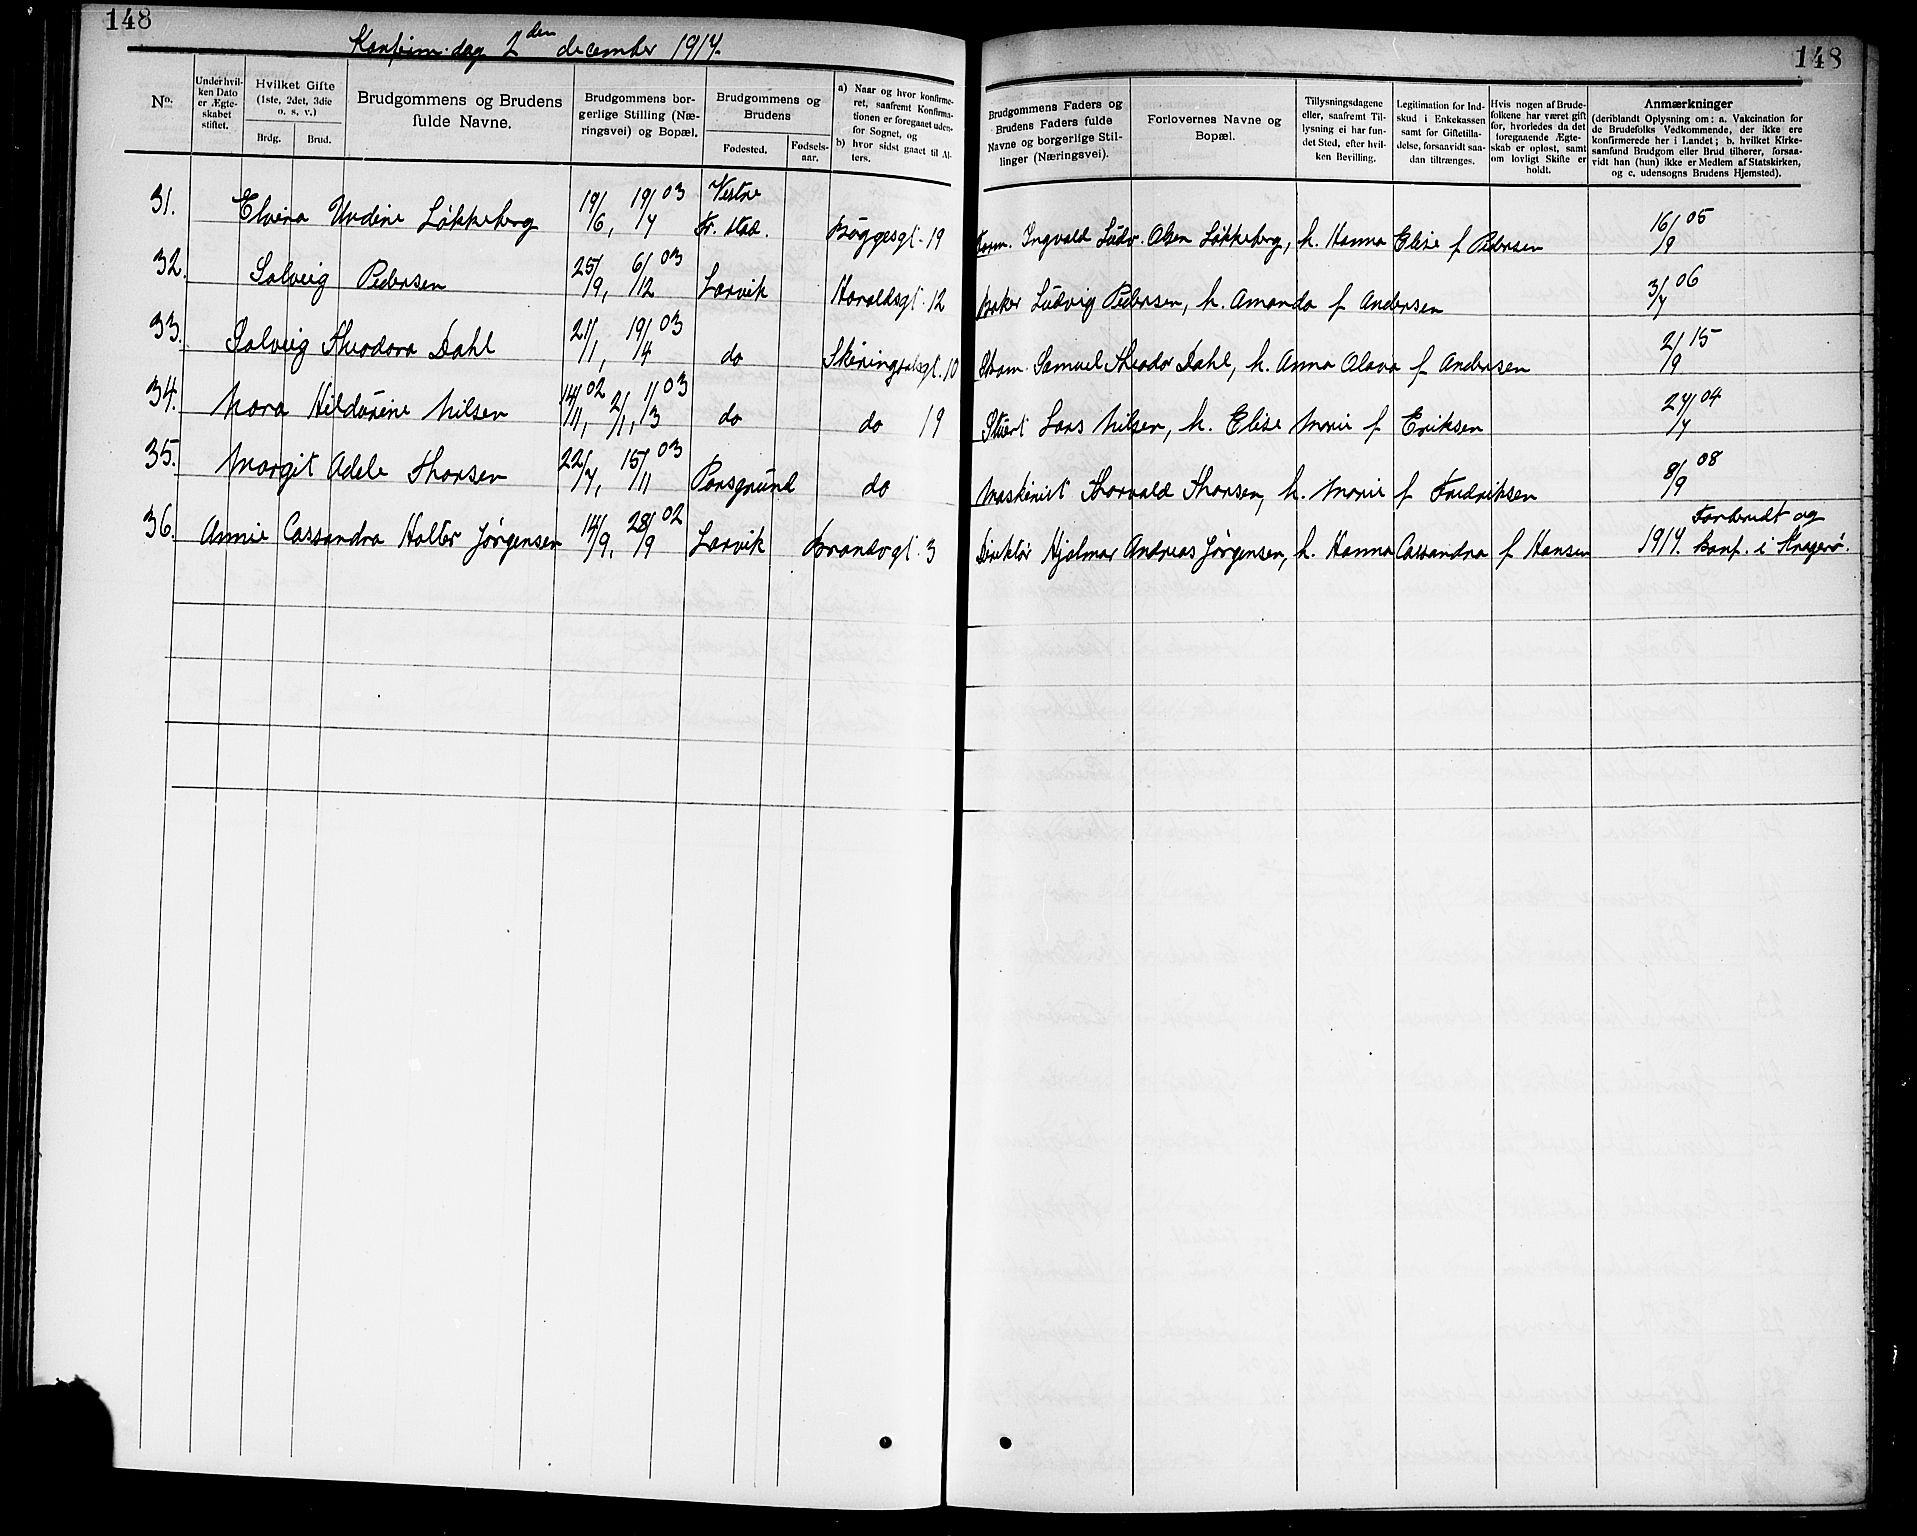 148
Konfirm. dag 2den december 1917.
No.
Under hvilken Dato er Ægteskabet stiftet.
Hvilket Gifte (1ste, 2det, 3die o. s. v.)
Brdg.
Brud.
Brudgommens og Brudens fulde Navne.
Brudgommens borgerlige Stilling (Næringsvei) og Bopæl.
Brudgommens og Brudens
Fødested.
Fødselsaar.
a) Naar og hvor konfirmeret, saafremt Konfirmationen er foregaaet udenfor Sognet, og
b) hvor sidst gaaet til Alters.
31. Elvira Undine Løkkeberg 19/6, 19/7 03 Vestre Fr.stad. Bøggesgt. 19
32. Solveig Pedersen 25/9, 6/12 03 Larvik Haraldsgt. 12
33. Solveig Theodora Dahl 21/1, 19/4 03 do Skiringssalsgt. 10
34. Nora Hildurine Nilsen 14/11 02, 2/1, 1/3 03 do do 19
35. Margit Adele Thorsen 22/7, 15/11 03 Porsgrund do
36. Annie Cassandra Holter Jørgensen 14/9, 28/9 02 Larvik Brandvgt. 3
148
Brudgommens Faders og Brudens Faders fulde Navne og borgerlige Stillinger (Næringsvei).
Forlovernes Navne og Bopæl.
Tillysningsdagene eller, saafremt Tillysning ei har fundet Sted, efter hvilken Bevilling.
Legitimation for Indskud i Enkekassen samt for Giftetilladelse, forsaavidt saadan tiltrænges.
Hvis nogen af Brudefolkene har været gift før, hvorledes da det foregaaende Ægteskab er opløst, samt om lovligt Skifte er holdt.
Anmærkninger
(deriblandt Oplysning om: a. Vakcination for de Brudefolks Vedkommende, der ikke ere konfirmerede her i Landet; b. hvilket Kirkesamfund Brudgom eller Brud tilhører, forsaavidt han (hun) ikke er Medlem af Statskirken, og c. udensogns Brudens Hjemsted).
Ingvald Ludv. Olsen Løkkeberg, h. Hanna Elise f Pedersen 16/9 05
Baker Ludvig Pedersen, h. Amanda f Andersen 3/7 06
Samuel Theodor Dahl, h. Anna Olava f Andersen 2/9 15
Stuert Lars Nilsen, h. Elise Marie f Eriksen 27/7 04
Maskinist Thorvald Thorsen, h. Marie f Fredriksen 8/9 08
Direktør Hjalmar Andreas Jørgensen, h. Hanna Cassandra f Hansen 1917. Forberedt og konf. i Kragerø.